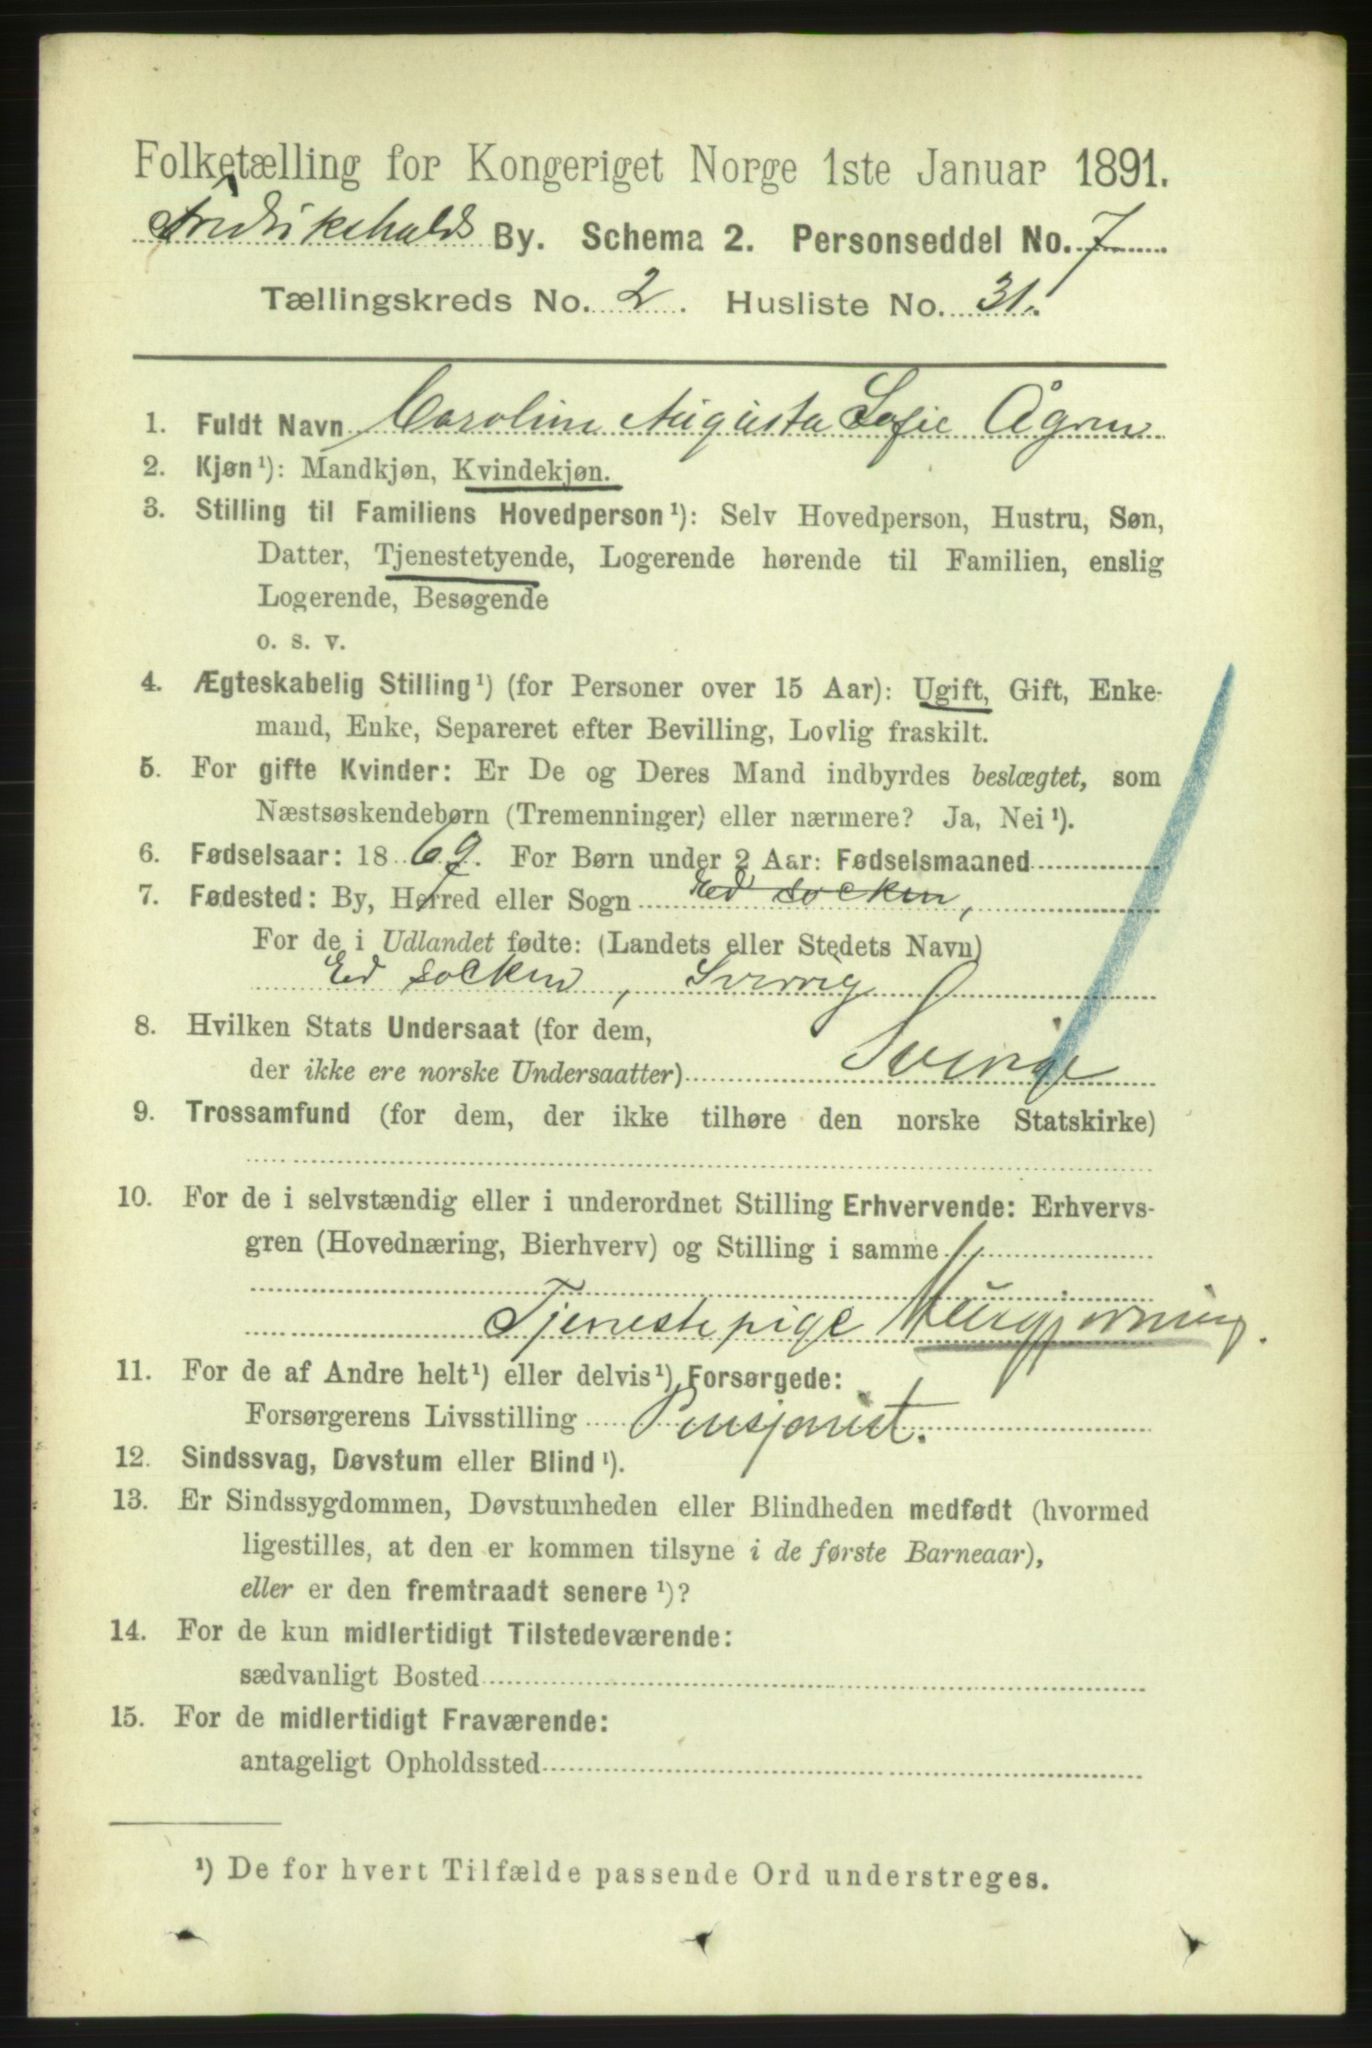 Folketælling for Kongeriget Norge 1ste Januar 1891.
Fredrikshalds By. Schema 2. Personseddel No. 7
Tællingskreds No. 2. Husliste No. 31.
1. Fuldt Navn Caroline Augusta Sofie Ågren
2. Kjøn ¹): Mandkjøn, Kvindekjøn.
3. Stilling til Familiens Hovedperson ¹): Selv Hovedperson, Hustru, Søn,
Datter, Tjenestetyende, Logerende hørende til Familien, enslig
Logerende, Besøgende
o. s. v.
4. Ægteskabelig Stilling ¹) (for Personer over 15 Aar): Ugift, Gift, Enke-
mand, Enke, Separeret efter Bevilling, Lovlig fraskilt.
5. For gifte Kvinder: Er De og Deres Mand indbyrdes beslægtet, som
Næstsøskendebørn (Tremenninger) eller nærmere? Ja, Nei ¹).
6. Fødselsaar: 1869. For Børn under 2 Aar: Fødselsmaaned
7. Fødested: By, Herred eller Sogn Ed socken,
For de i Udlandet fødte: (Landets eller Stedets Navn)
Ed socken, Sverrig
8. Hvilken Stats Undersaat (for dem,
der ikke ere norske Undersaatter) Sverige
9. Trossamfund (for dem, der ikke tilhøre den norske Statskirke)
10. For de i selvstændig eller i underordnet Stilling Erhvervende: Erhvervs-
gren (Hovednæring, Bierhverv) og Stilling i samme
Tjenestepige Husgjerning.
11. For de af Andre helt ¹) eller delvis ¹) Forsørgede:
Forsørgerens Livsstilling Pensjonist.
12. Sindssvag, Døvstum eller Blind ¹).
13. Er Sindssygdommen, Døvstumheden eller Blindheden medfødt (hvormed
ligestilles, at den er kommen tilsyne i de første Barneaar),
eller er den fremtraadt senere ¹)?
14. For de kun midlertidigt Tilstedeværende:
sædvanligt Bosted
15. For de midlertidigt Fraværende:
antageligt Opholdssted
¹) De for hvert Tilfælde passende Ord understreges.